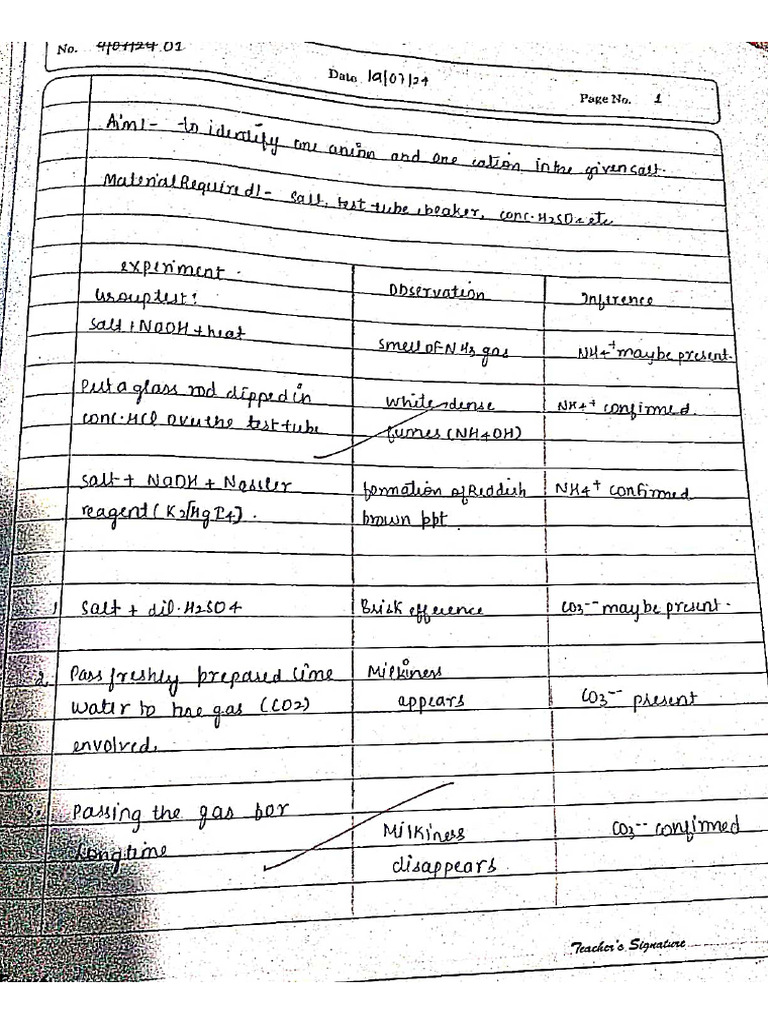 No. 4/07/24 01
Date 19/07/24
Page No. 1
Aim:- to identify one anion and one cation in the given salt.
Material Required:- salt, test tube, beaker, conc. H2SO4 etc
experiment. Observation Inference
Group test:
salt + NaOH + heat smell of NH3 gas NH4+ maybe present.
Put a glass rod dipped in white dense NH4+ confirmed.
conc. HCl over the test tube fumes (NH4OH)
salt + NaOH + Nessler formation of Reddish NH4+ confirmed
reagent ( K2[HgI4) . brown ppt
1 salt + dil. H2SO4 Brisk efference CO3-- maybe present.
2. Pass freshly prepared lime Milkiness
water to the gas (CO2) appears CO3-- present
envolved.
Passing the gas for
longtime Milkiness CO3-- confirmed
disappears
Teacher's Signature